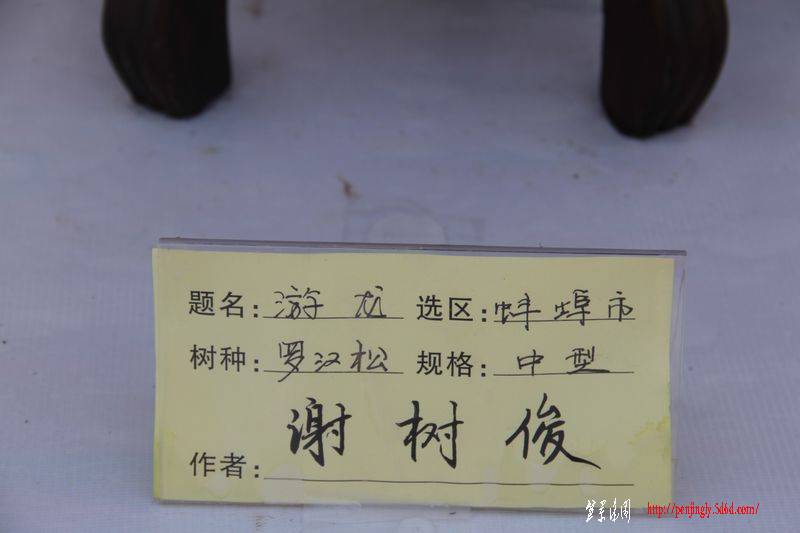 题名:游龙 选区:蚌埠市
树种:罗汉松 规格:中型
作者:谢树俊
http://penjingly.5d6d.com/